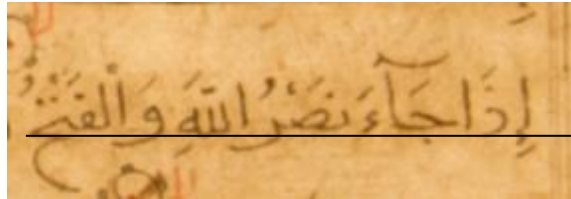 إِذَا جَآءَ نَصْرُ اللَّهِ وَالْفَتْحُ